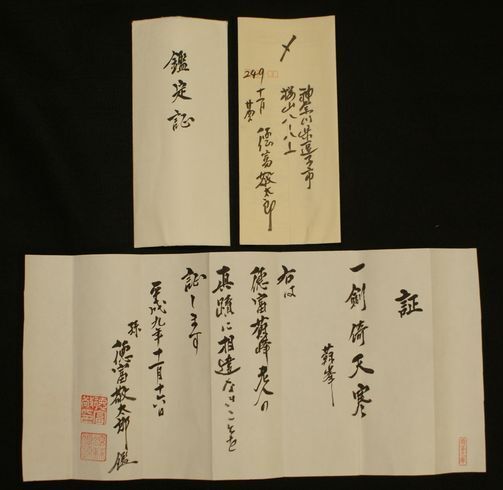 鑑定証
〆
249
神奈川県逗子市
桜山八ー八ー上
十一月
徳富敬太郎
証
一剣倚天寒
蘇峯
右は
徳富蘇峰老人の
真蹟に相違ないことを
証します
平成九年十一月十六日
孫 徳富敬太郎 鑑